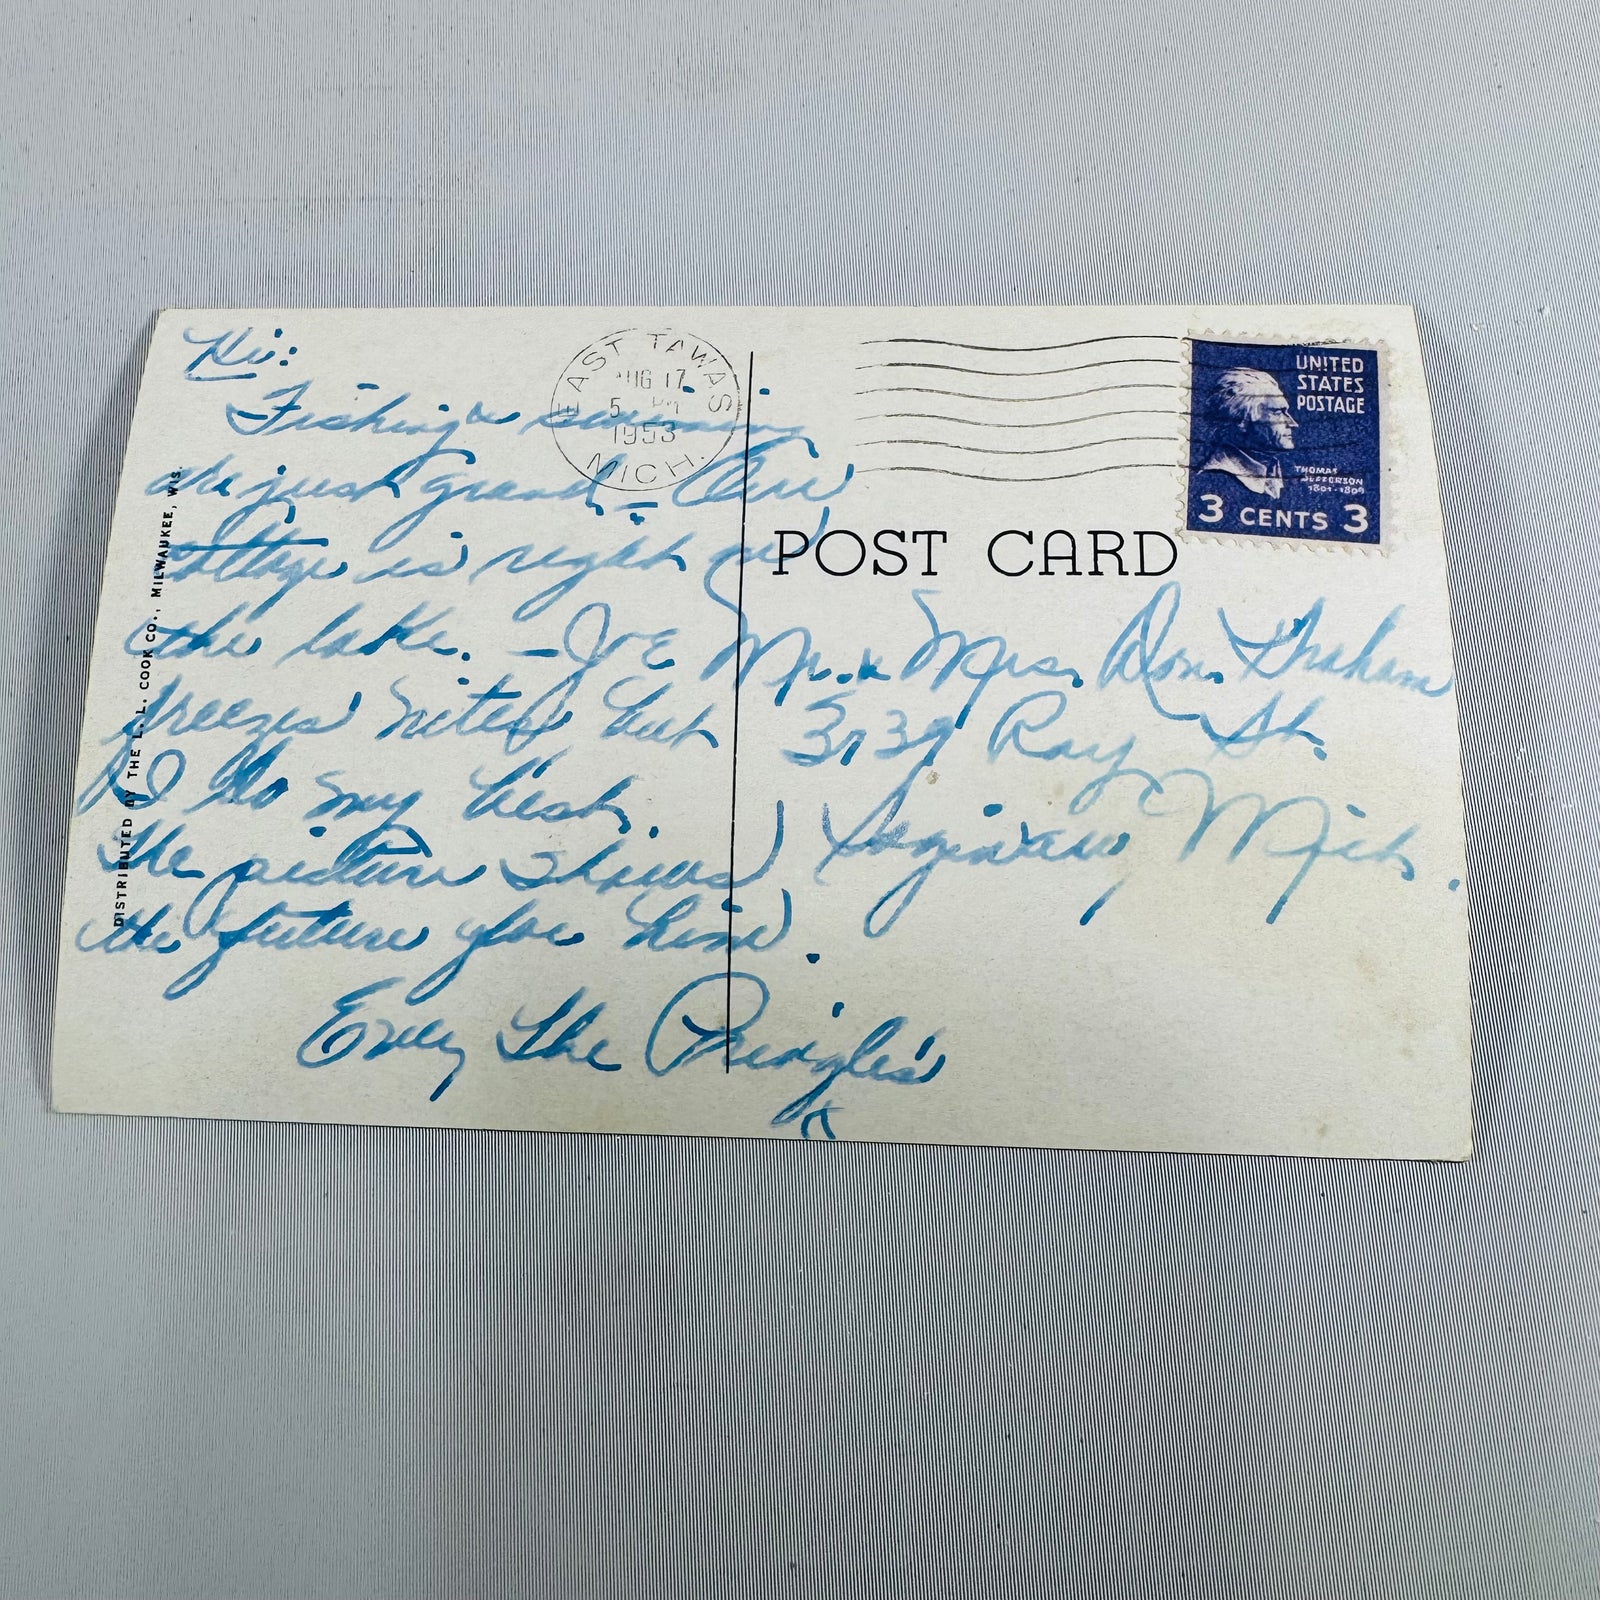 Hi:
Fishing & swimming
are just grand - Our
cottage is right on
the lake. - Joe
freezes nites but
I do my best.
The picture shows
the future for him.
Evey The Pringle's
DISTRIBUTED BY THE L. L. COOK CO., MILWAUKEE, WIS.
EAST TAWAS
AUG 17
5 PM
1953
MICH.
UNITED
STATES
POSTAGE
THOMAS
JEFFERSON
1801-1809
3 CENTS 3
POST CARD
Mr. & Mrs. Don Graham
3139 Ray St.
Saginaw Mich.